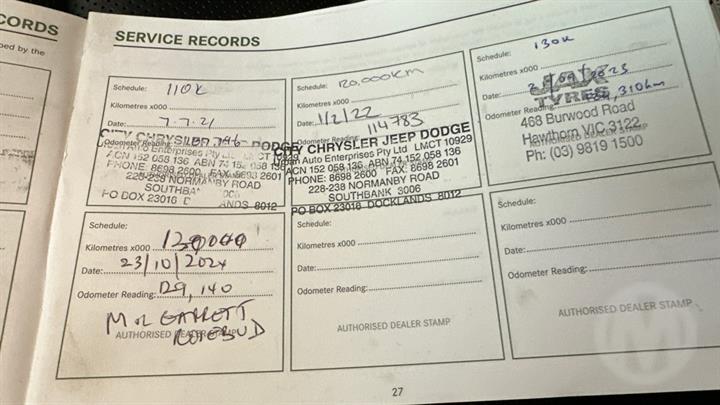 CORDS
ped by the
SERVICE RECORDS
Schedule: 110K
Kilometres x000
Date: 7.7.21
Odometer Reading:
CITY CHRYSLER JEEP DODGE
ACN 152 058 136 ABN 74 152 058 136
PHONE: 8698 2600 FAX: 8698 2601
228-238 NORMANBY ROAD
SOUTHBANK
PO BOX 23016 DOCKLANDS 8012
Schedule: 120,000km
Kilometres x000
Date: 1/2/22
Odometer Reading: 114783
CITY CHRYSLER JEEP DODGE
Auto Enterprises Pty Ltd LMCT 10929
ACN 152 058 136 ABN 74 152 058 136
PHONE: 8698 2600 FAX: 8698 2601
228-238 NORMANBY ROAD
SOUTHBANK 3006
PO BOX 23016 DOCKLANDS 8012
Schedule: 130K
Kilometres x000
Date:
Odometer Reading:
JAX
TYRES
468 Burwood Road
Hawthorn VIC 3122
AUTHORISED DEALER STAMP
Ph: (03) 9819 1500
Schedule:
Kilometres x000
Date: 23/10/2024
Odometer Reading: 129,140
AUTHORISED DEALER STAMP
ROSEBUD
Schedule:
Kilometres x000
Date:
Odometer Reading:
AUTHORISED DEALER STAMP
Schedule:
Kilometres x000
Date:
Odometer Reading:
AUTHORISED DEALER STAMP
27